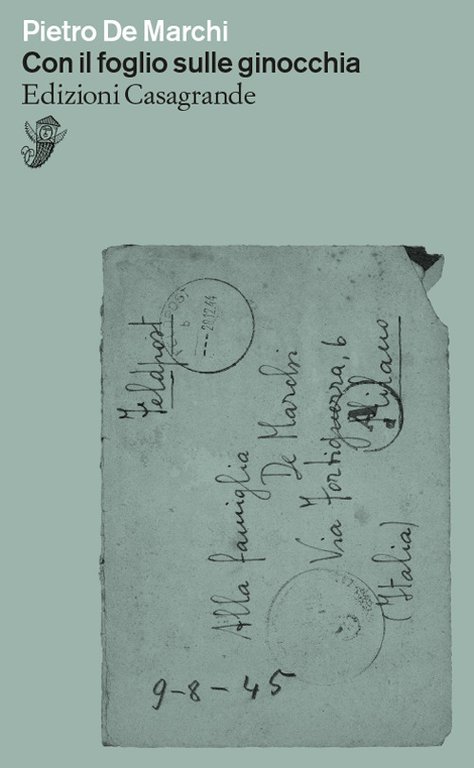 Pietro De Marchi
Con il foglio sulle ginocchia
Edizioni Casagrande
Feldpost
b
--- 28.12.44
Alla famiglia
De Marchi
Via Fortiguerra, 6
Milano
(Italia)
9-8-45